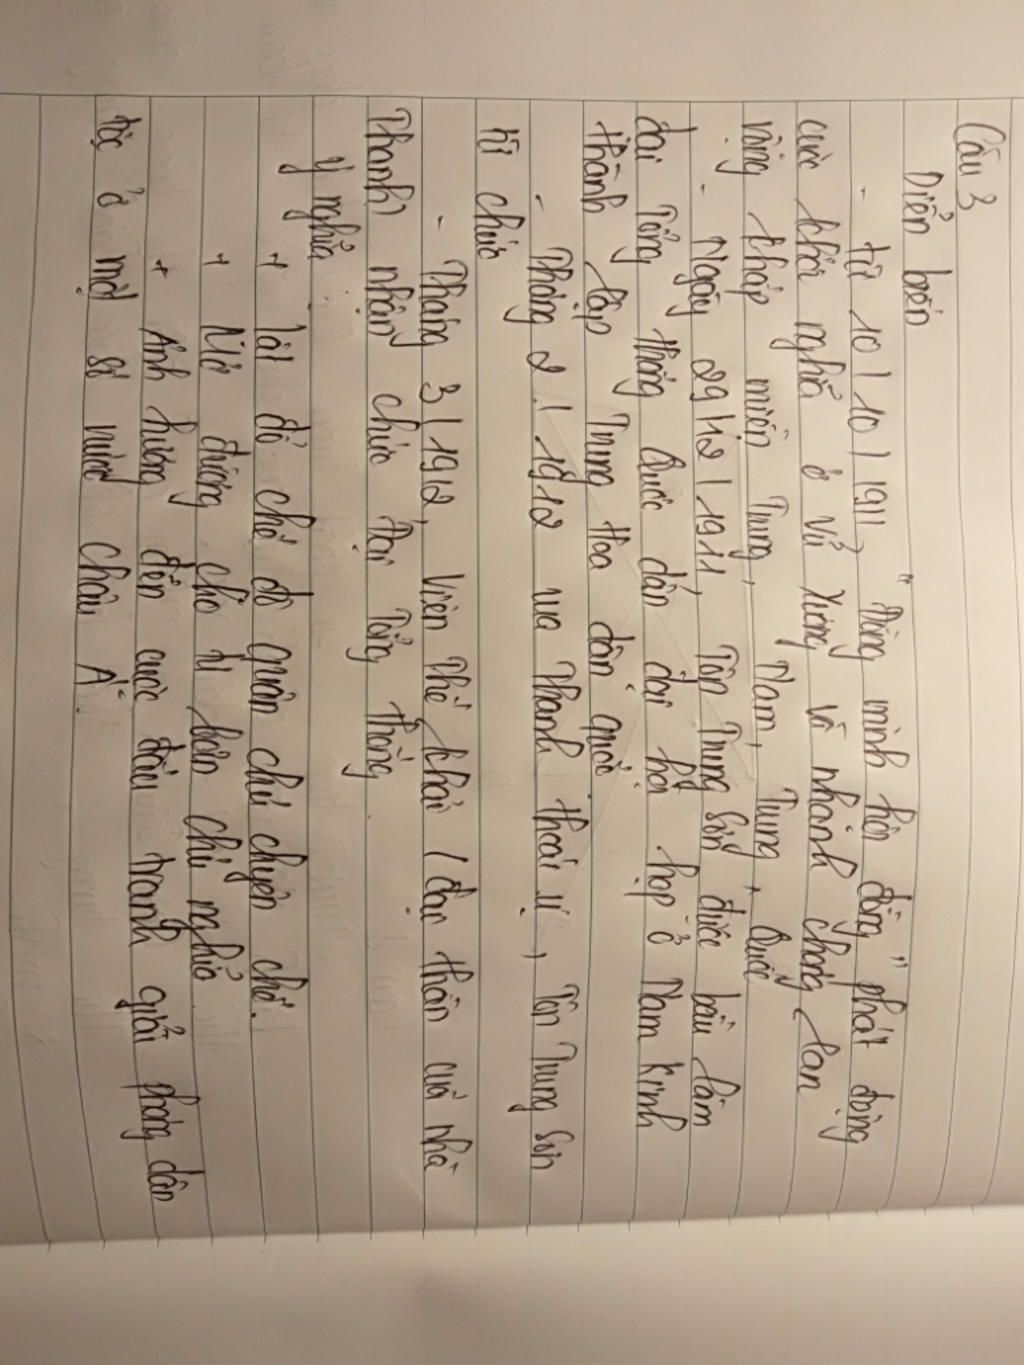 Câu 3
Diễn biến
- từ 10/10/1911, "Đồng minh hội đồng" phát động
cuộc khởi nghĩa ở Vũ Xương và nhanh chóng lan
rộng khắp miền Trung, Nam, Trung, Quốc
- Ngày 29/12/1911, Tôn Trung Sơn được bầu làm
đại Tổng thống Quốc dân đại hội họp ở Nam Kinh
thành lập Trung Hoa dân quốc
- Tháng 2/1912 vua Thanh thoái vị, Tôn Trung Sơn
từ chức
- Tháng 3/1912, Viên Thế Khải (đại thần của nhà
Thanh) nhận chức Đại Tổng thống.
ý nghĩa
+ lật đổ chế độ quân chủ chuyên chế.
+ Mở đường cho tư bản chủ nghĩa.
+ Ảnh hưởng đến cuộc đấu tranh giải phóng dân
tộc ở một số nước châu Á.